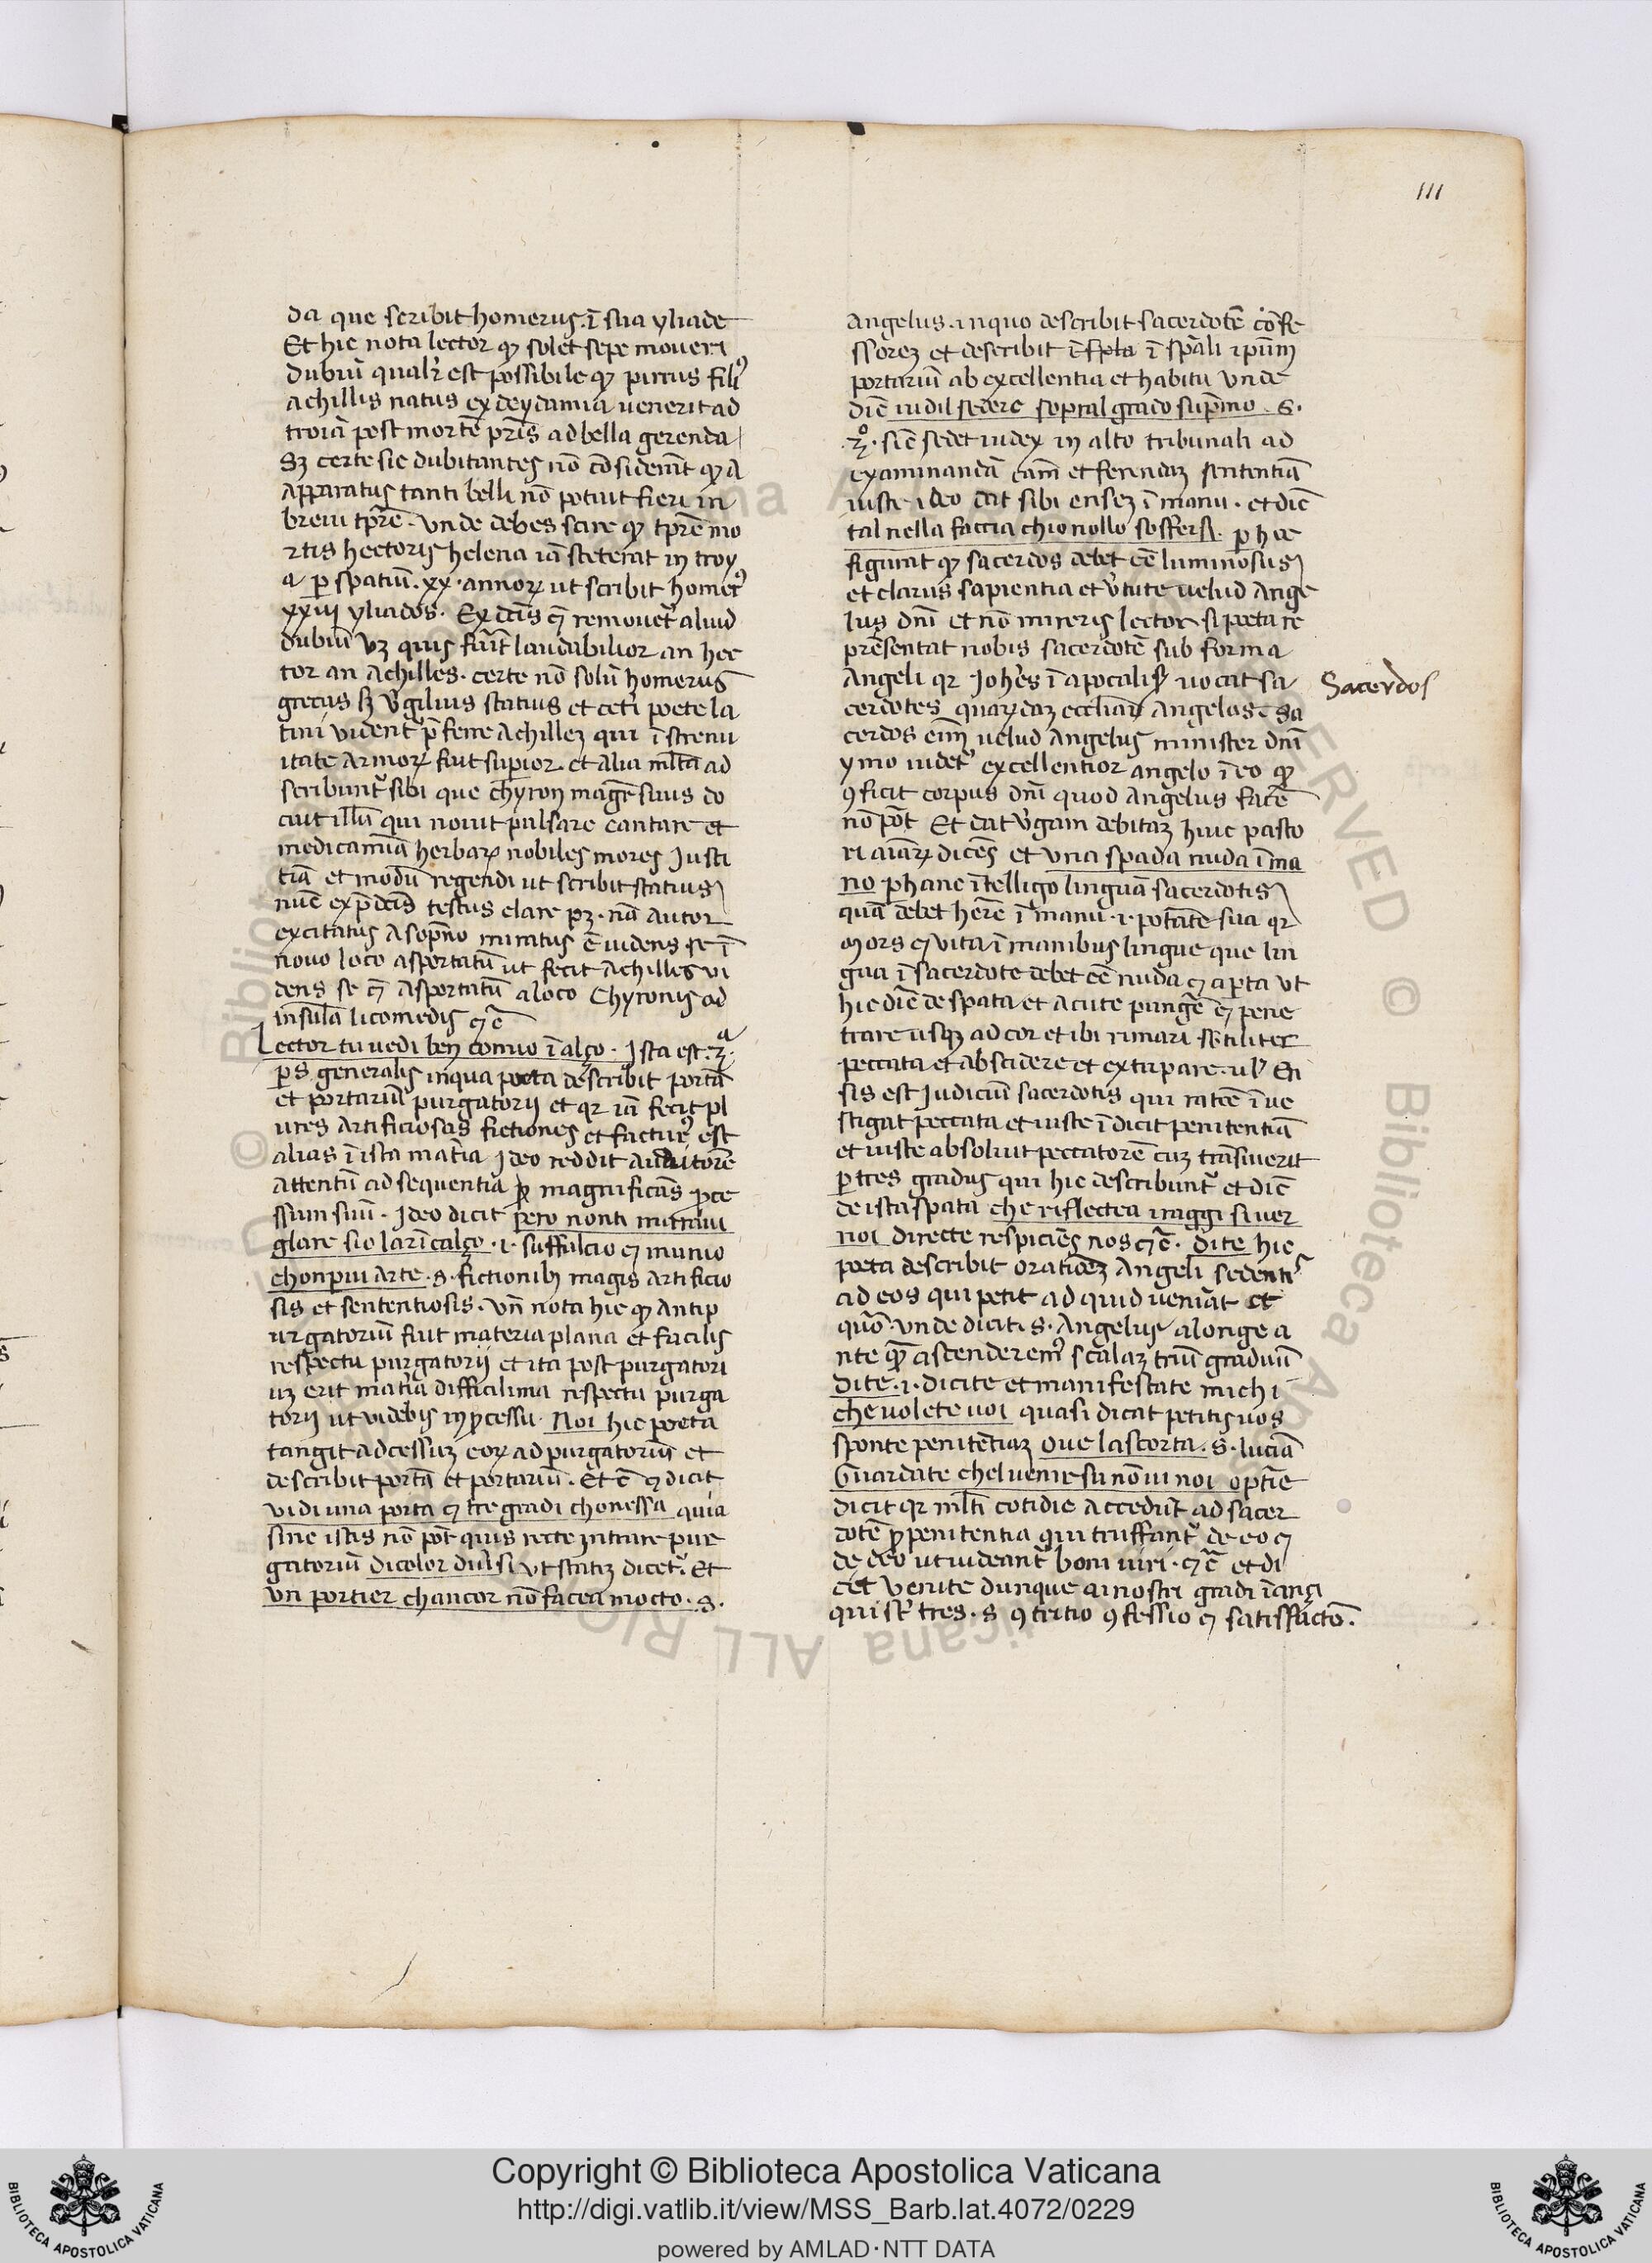 111
da que scribit homerus. ī sua yliade
Et hic nota lector ꝙ solet sepe moueri
dubiū qualr̄ est possibile ꝙ pirrus filiꝰ
achillis natus ex deydamia uenerit ad
troiā post mortē pr̄is ad bella gerenda
Sꝫ certe sic dubitantes nō cōsiderāt ꝙ a
apparatus tanti belli nō potuit fieri in
breui tp̄re. Vnde debes scire ꝙ tp̄re mo
rtis hectoris helena iā steterat in troy
a ꝑ spatiū. xx. annoꝝ ut scribit homerꝰ
xxiiij yliados. Ex dc̄is ⁊ remouet᷑ aliud
dubiū vꝫ quis fuerit laudabilior an hec
tor an achilles. certe nō solū homerus
grecus sꝫ v̓gilius statius et cet̓i poete la
tini uident᷑ p̄ferre achilleꝫ qui ī strenu
itate armoꝝ fuit suꝑior. et alia ml̄ta ad
scribunt᷑ sibi que chyron magr̄ suus do
cuit illū qui nouit pulsare cantare et
medicamīa herbaꝝ nobiles mores Justi
tiā et modū regendi ut scribit statius
nūc exp̄dc̄is textus clare pꝫ. nā autor
excitatus a sopno miratus ē uidens se ī
nouo loco asportatū ut fecit achilles vi
dens se ⁊ asportatū a loco Chyronis ad
insulā licomedis ⁊c̄
Lector tu uedi ben comio ī alço. Ista est. 2ᵃ.
ps̄ generalis in qua poeta describit portā
et portariū purgatorij et qr iā fecit pl
ures artificiosas fictiones et facturꝰ est
alias ī ista mat̓ia Ideo reddit auditorē
attentū ad sequentia ꝑ magnificās ꝓce
ssum suū. Ideo dicit pero nonti mirauі
glare sio la rīcalço .i. suffulcio ⁊ munio
chon piu arte .s. fictionibꝫ magis artificio
sis et sententiosis. Vn̄ nota hic ꝙ antip
urgatoriū fuit materia plana et facilis
respectu purgatorij et ita post purgatori
uꝫ erit mat̓ia difficilima respectu purga
torij ut videbis in ꝓcessu. Noi hic poeta
tangit adcessuꝫ eoꝝ ad purgatoriū et
describit portā et portariū. Et ē ꝙ dicit
vidi una porta ⁊ tre gradi chonessa quia
sine istis nō pōt quis recte intrare pur
gatoriū di color diuersi ut statiꝫ dicet᷑. Et
vn portier chancor nō facea mocto. s.
angelus. in quo describit sacerdotē cōfe
ssoreꝫ et describit ī fp̄la ī spāli ipūm
portariū ab excellentia et habitu unde
diē iudil sedere sopral grado sup̄mo. s.
3º. sic sedet iudex in alto tribunali ad
examinandā cām et ferendaꝫ sententiā
iuste ideo dat sibi enseꝫ ī manu. et diē
tal nella faccia chio nollo soffersi. ꝑ hec
figurat ꝙ sacerdos debet ēē luminosus
et clarus sapientia et v̓tute uelud ange
lus dn̄i et nō mireris lector si poeta re
presentat nobis sacerdotē sub forma
angeli qr Joh̄es ī apocalip̄ uocat sa
cerdotes quaꝝdaꝫ ecclīaꝝ angelos. Sa
cerdos eīm uelud angelus minister dn̄i
ymo uidet᷑ excellentior angelo ī eo ꝙ
ꝯficit corpus dn̄i quod angelus facē
nō pōt Et dat v̓gam debitaꝫ huic pasto
ri aīaꝝ dicēs et vna spada nuda ī ma
no ꝑ hanc ītelligo linguā sacerdotis
quā debet hēre ī manu .i. potātē sua qr
mors ⁊ vita ī manibus lingue que lin
gua ī sacerdote debet ēē nuda ⁊ aꝑta ut
hic diē de spata et acute pungē ⁊ pene
trare usqꝫ ad cor et ibi rimari sētiliter
peccata et abscidere et extirpare. ul̓ En
sis est Judiciū sacerdotis qui rat̄ōe ī ue
stigat peccata et iuste ī dicit penitentiā
et iuste absoluit peccatorē cuꝫ trāsiuerit
ꝑ tres gradus qui hic describunt᷑ et diē
de ista spata che riflectea i raggi si uer
noi directe respiciēs nos ⁊c̄. Dite hic
poeta describit oratiōeꝫ angeli sedentiˢ
ad eos qui petit ad quid ueniāt et
quō. unde dicit. s. angelus a longe a
nte ꝙ ascenderemꝰ scalaꝫ triū graduū
Dite .i. dicite et manifestate michi
che uolete uoi quasi dicat petitis uos
sponte penitētiaꝫ oue la scorta. s. lucia
Guardate chel uenir su nō ui noi optīe
dicit qr ml̄ti cotidie accedūt ad sacer
dotē ꝓ penitentia qui truffant᷑ de eo ⁊
de deo ut uideant᷑ boni uiri. ⁊c̄ et di
cet venite dunque ai nostri gradi īançi
qui st̄ tres. s ꝯtritio ꝯfessio ⁊ satisfactō.
Sacerdos
Copyright © Biblioteca Apostolica Vaticana
http://digi.vatlib.it/view/MSS_Barb.lat.4072/0229
powered by AMLAD·NTT DATA